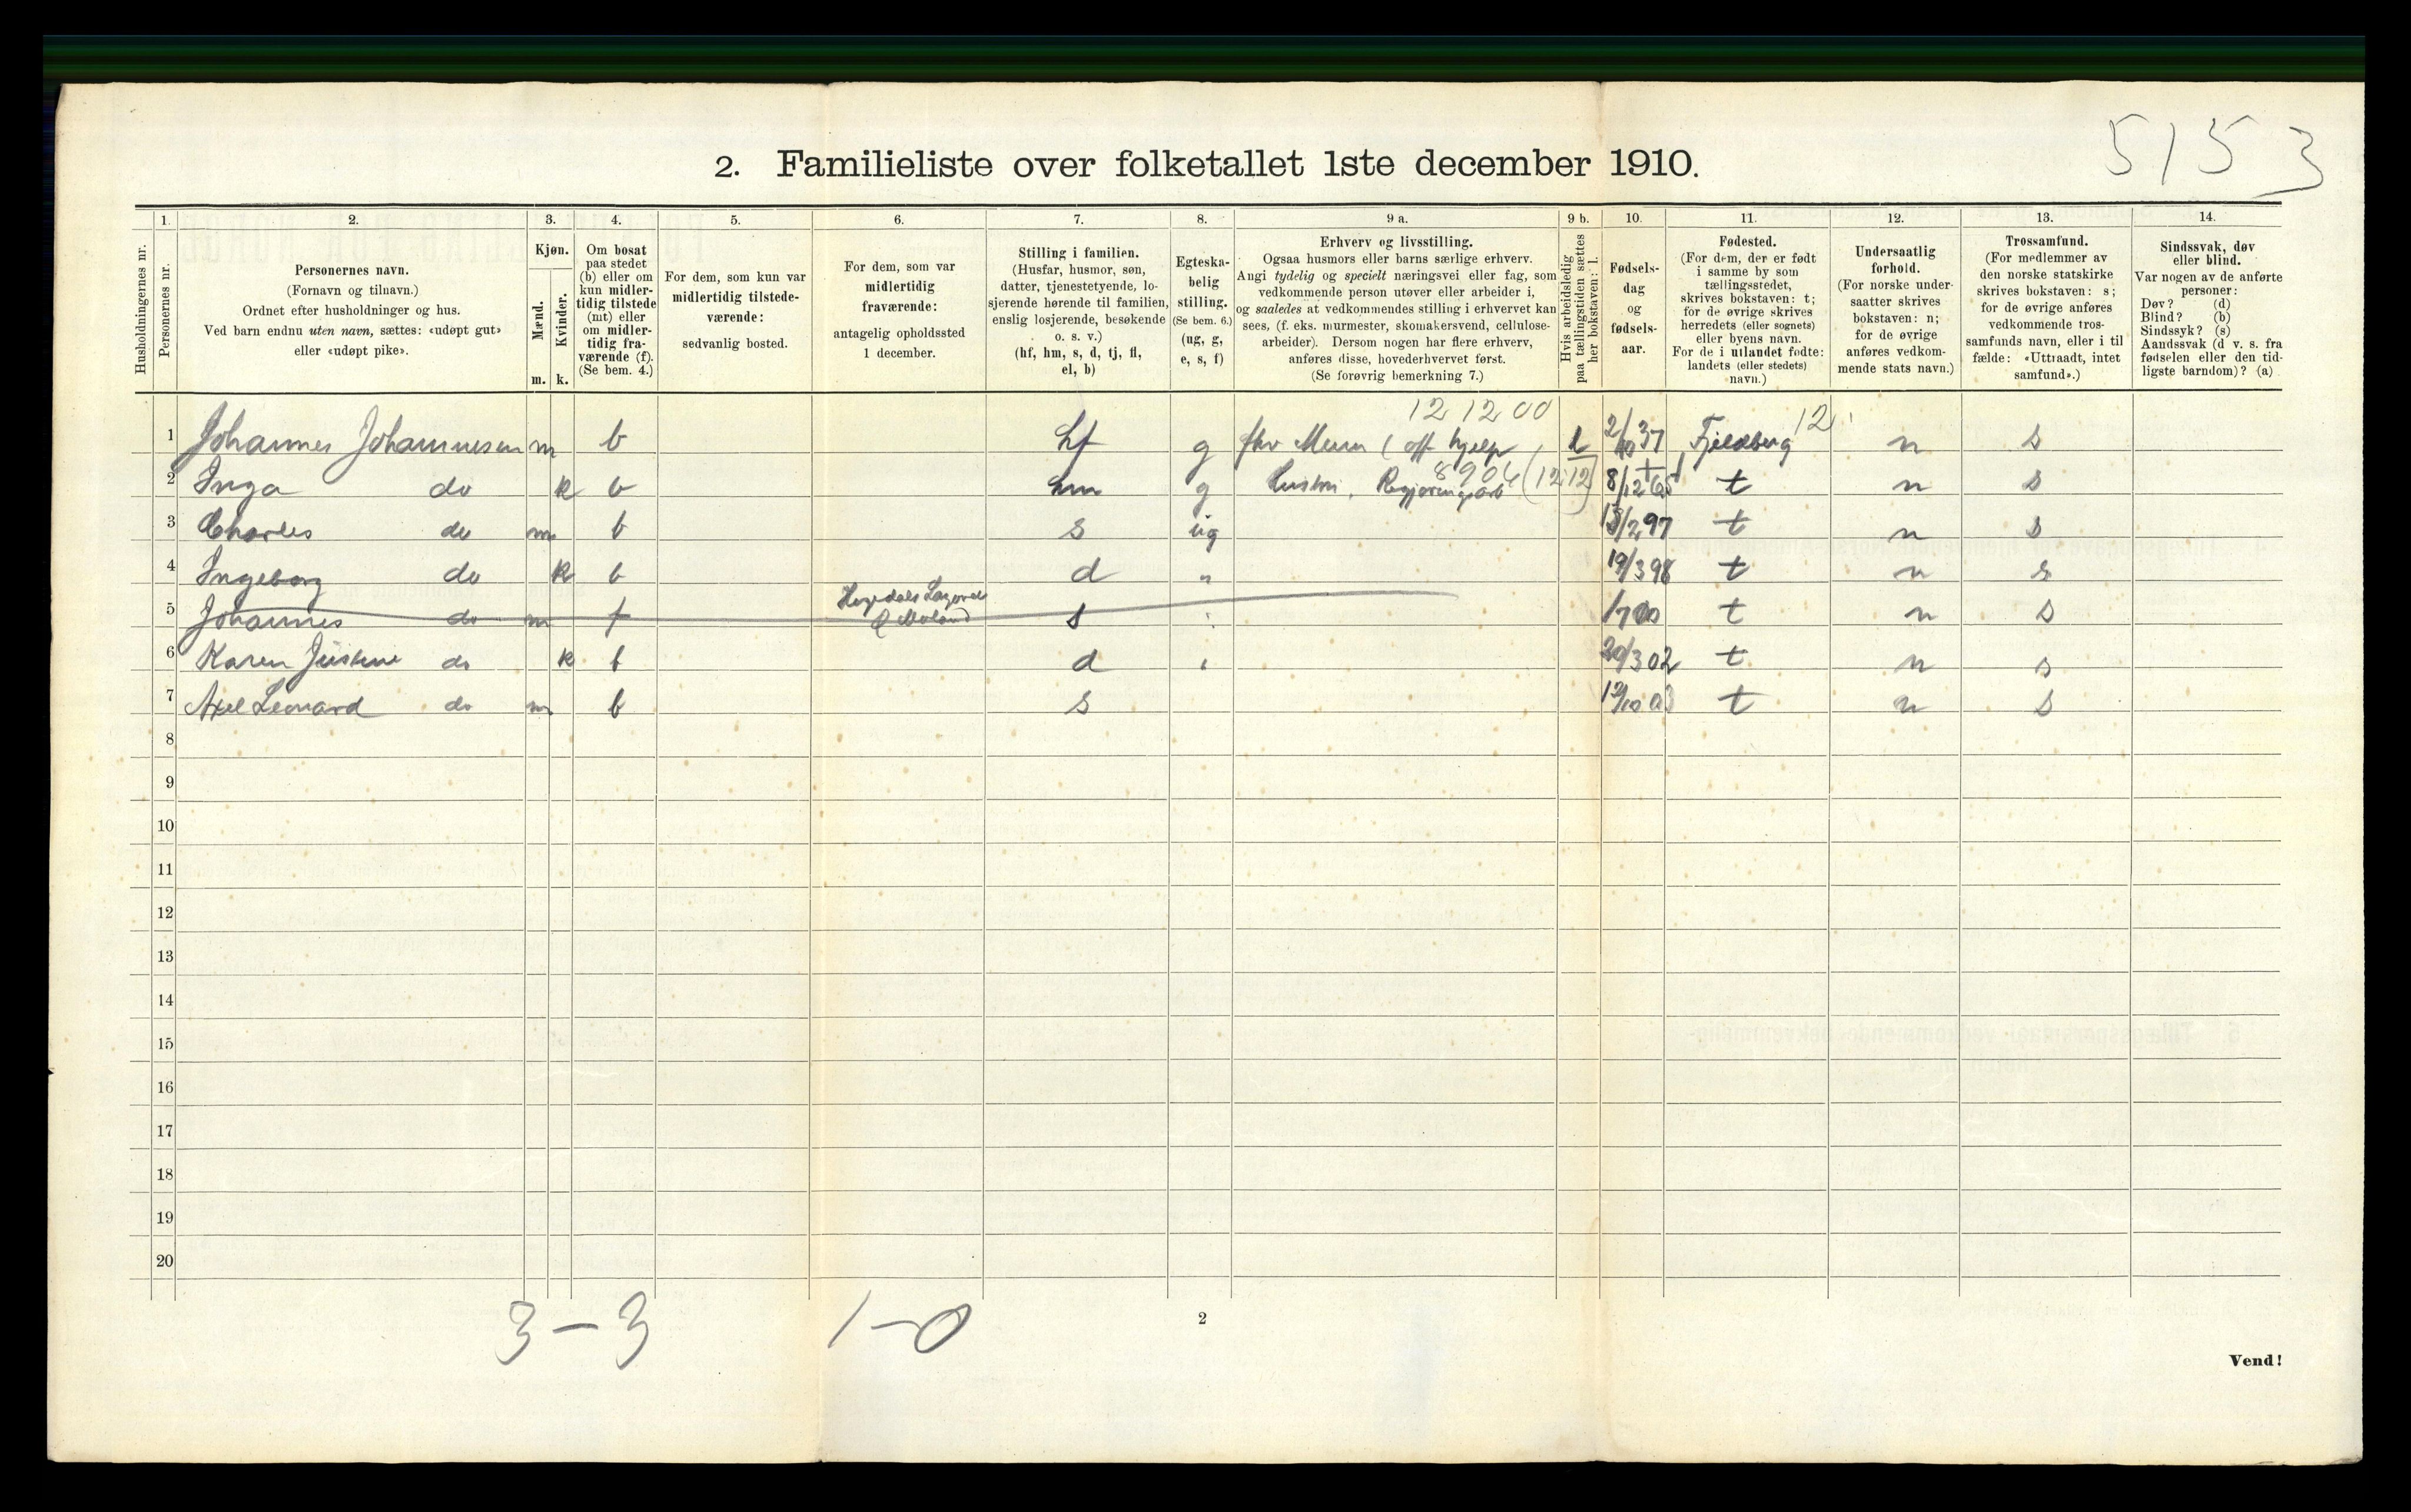 5153
2. Familieliste over folketallet 1ste december 1910.
1. 2. 3. 4. 5. 6. 7. 8. 9 a. 9 b. 10. 11. 12. 13. 14.
Husholdningernes nr.
Personernes nr.
Personernes navn.
(Fornavn og tilnavn.)
Ordnet efter husholdninger og hus.
Ved barn endnu uten navn, sættes: «udøpt gut»
eller «udøpt pike».
Kjøn.
Mænd.
Kvinder.
m. k.
Om bosat
paa stedet
(b) eller om
kun midler-
tidig tilstede
(mt) eller
om midler-
tidig fra-
værende (f).
(Se bem. 4.)
For dem, som kun var
midlertidig tilstede-
værende:
sedvanlig bosted.
For dem, som var
midlertidig
fraværende:
antagelig opholdssted
1 december.
Stilling i familien.
(Husfar, husmor, søn,
datter, tjenestetyende, lo-
sjerende hørende til familien,
enslig losjerende, besøkende
o. s. v.)
(hf, hm, s, d, tj, fl,
el, b)
Egteska-
belig
stilling.
(Se bem. 6.)
(ug, g,
e, s, f)
Erhverv og livsstilling.
Ogsaa husmors eller barns særlige erhverv.
Angi tydelig og specielt næringsvei eller fag, som
vedkommende person utøver eller arbeider i,
og saaledes at vedkommendes stilling i erhvervet kan
sees, (f. eks. murmester, skomakersvend, cellulose-
arbeider). Dersom nogen har flere erhverv,
anføres disse, hovederhvervet først.
(Se forøvrig bemerkning 7.)
Hvis arbeidsledig
paa tællingstiden sættes
her bokstaven: l.
Fødsels-
dag
og
fødsels-
aar.
Fødested.
(For dem, der er født
i samme by som
tællingsstedet,
skrives bokstaven: t;
for de øvrige skrives
herredets (eller sognets)
eller byens navn.
For de i utlandet fødte:
landets (eller stedets)
navn.)
Undersaatlig
forhold.
(For norske under-
saatter skrives
bokstaven: n;
for de øvrige
anføres vedkom-
mende stats navn.)
Trossamfund.
(For medlemmer av
den norske statskirke
skrives bokstaven: s;
for de øvrige anføres
vedkommende tros-
samfunds navn, eller i til
fælde: «Uttraadt, intet
samfund».)
Sindssvak, døv
eller blind.
Var nogen av de anførte
personer:
Døv? (d)
Blind? (b)
Sindssyk? (s)
Aandssvak (d v. s. fra
fødselen eller den tid-
ligste barndom)? (a)
12 12 00 12
1 Johannes Johannesen m b hf g fhv Murer (off hjelp) l 2/10 37 Fjeldberg n s
8904 (12 12)
2 Inga do k b hm g 8/12 65 t n s
3 Charles do m b s ug 13/2 97 t n s
4 Ingeborg do k b d " 19/3 98 t n s
5 Johannes do m f s " t n s
6 Karen Justine do k b d " 20/3 02 t n s
7 Axel Leonard do m b s 12/10 03 t n s
8
9
10
11
12
13
14
15
16
17
18
19
20
3 - 3 1 - 0
2
Vend!